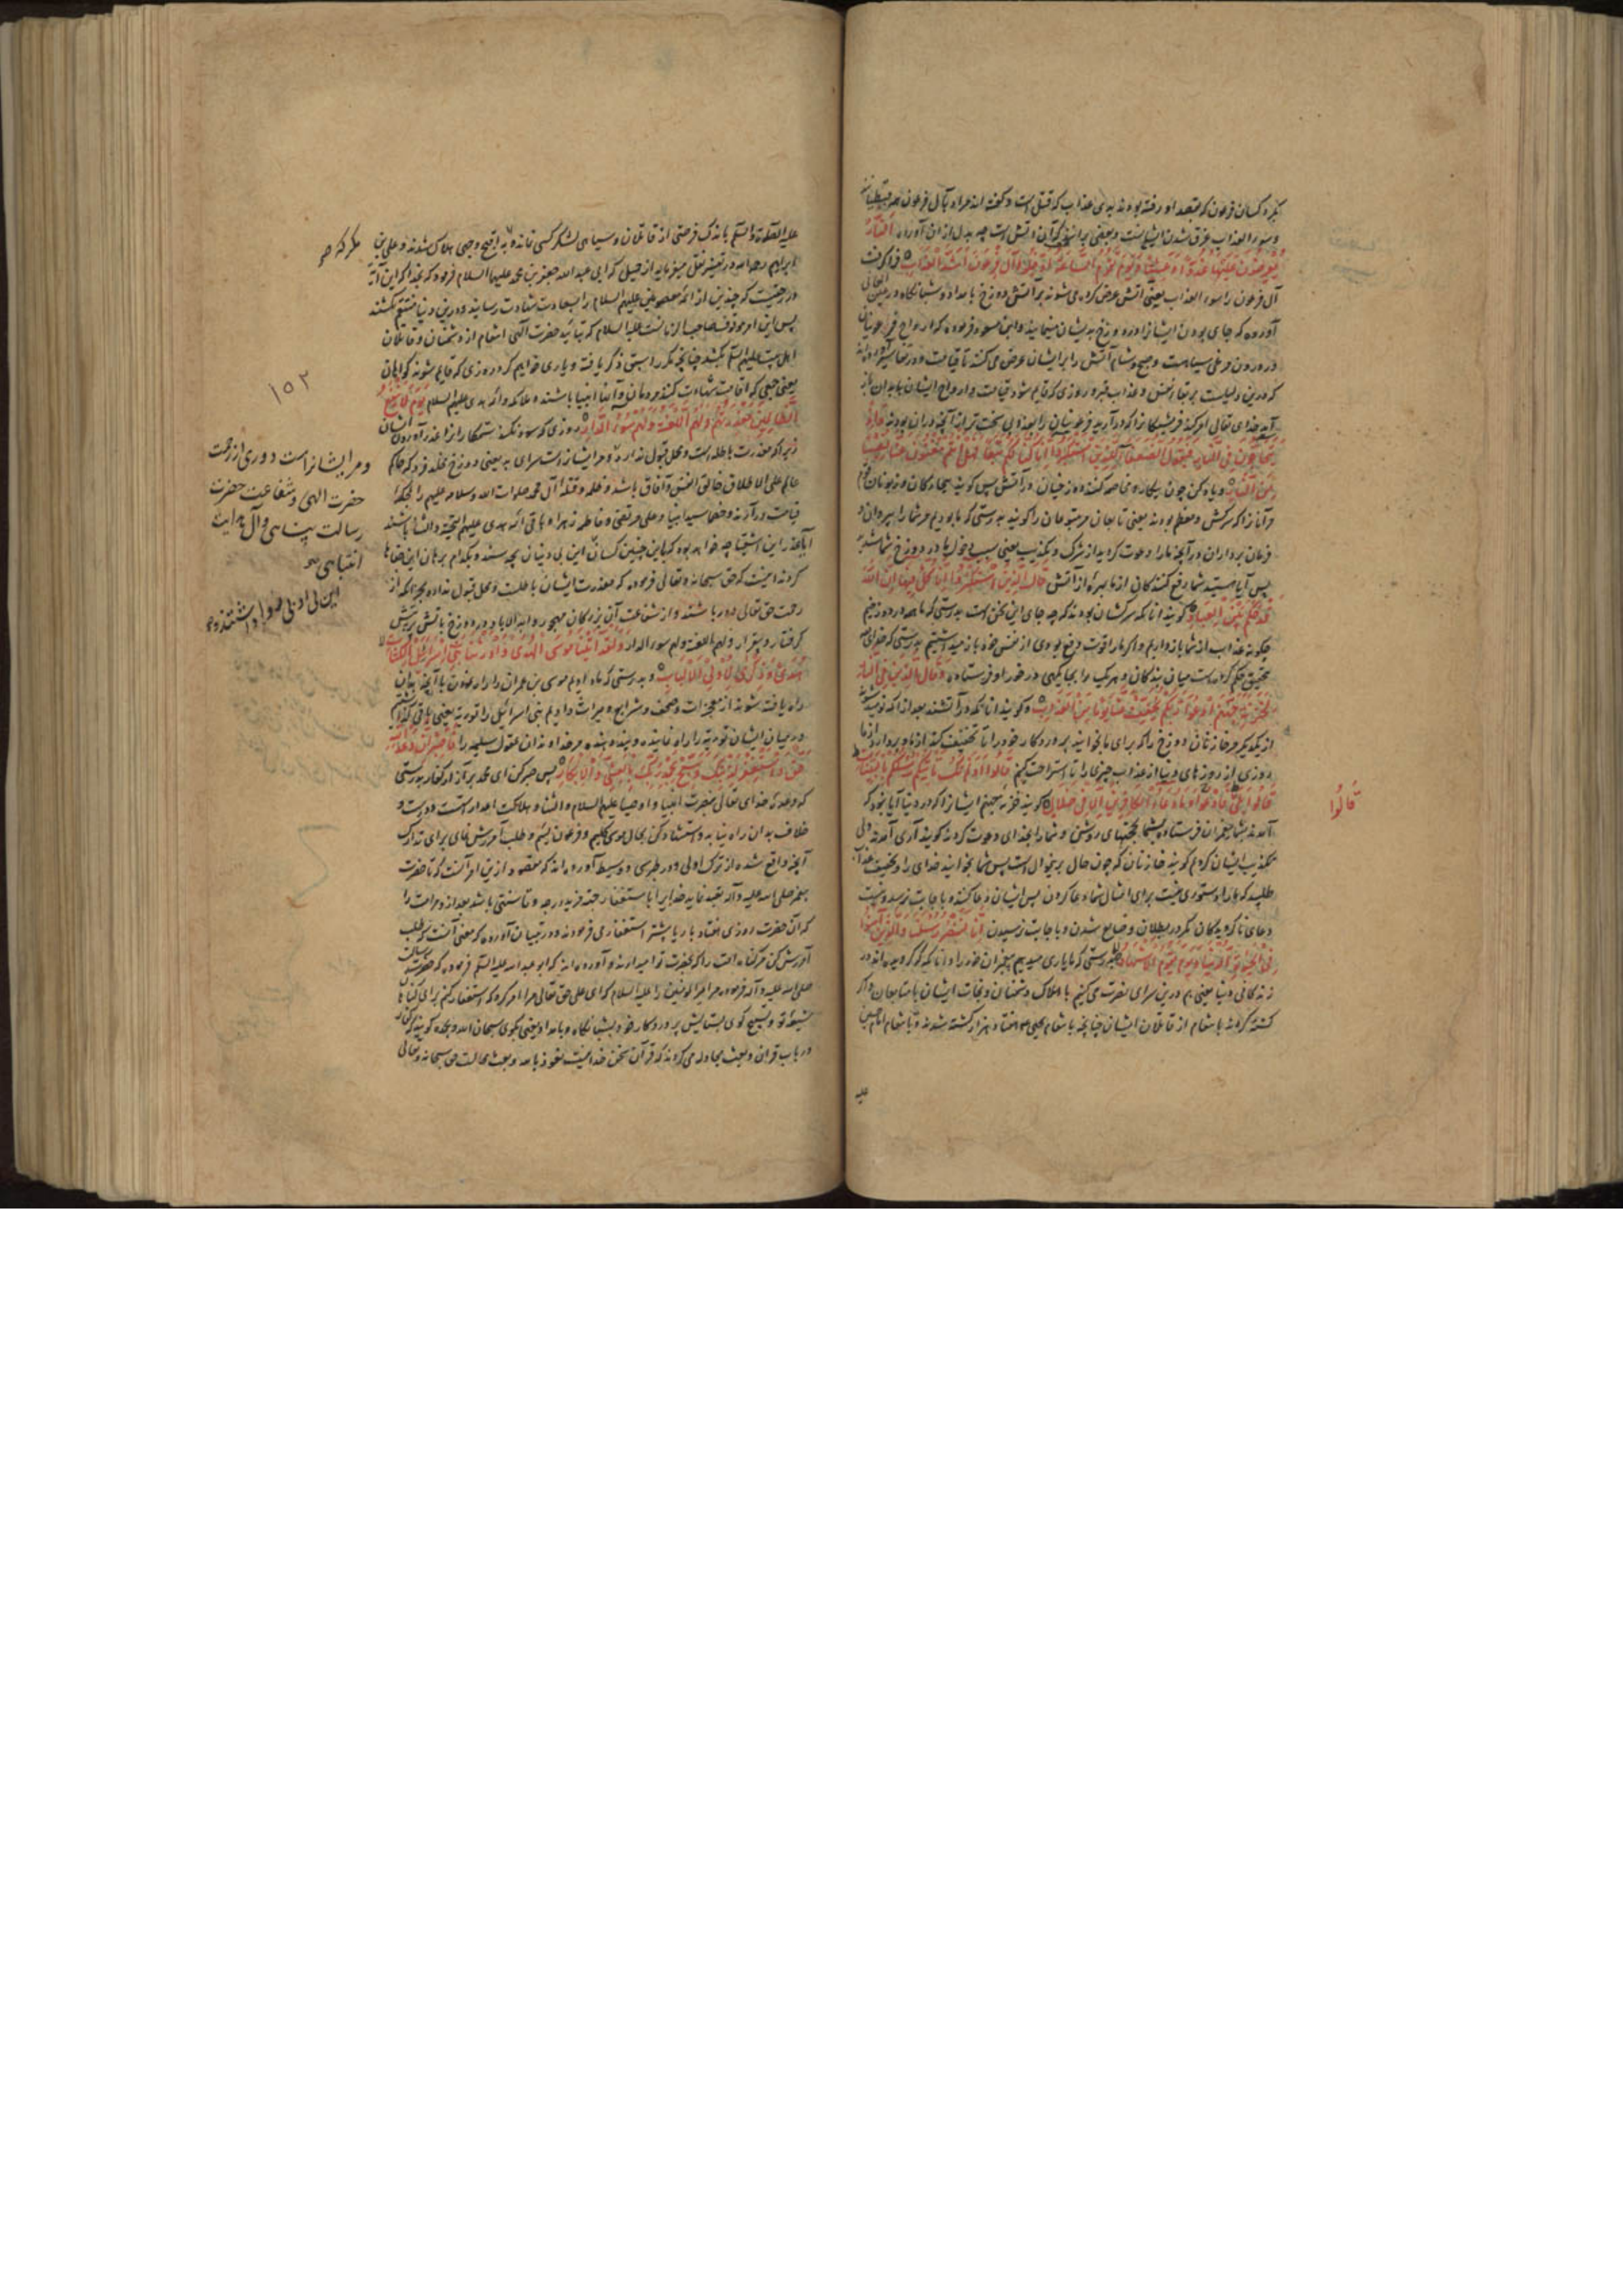 بکرد کسان فرعون که بقصد او رفته بودند بدی عذاب که قتل است و گفته اند مراد بآل فرعون همه قبطیانند
و سوء العذاب غرق شدن ایشانست و بعضی برانند که آن آتش است چه بدل از ان آورده اَلنّارُ
یُعْرَضُونَ عَلَیْها غُدُوًّا وَ عَشِیًّا وَ یَوْمَ تَقُومُ السّاعَةُ اَدْخِلُوا آلَ فِرْعَوْنَ اَشَدَّ الْعَذابِ فرا گرفت
آل فرعون را سوء العذاب یعنی آتش عرض کرده می شوند بر آتش دوزخ بامداد و شبانگاه و در
آورده که جای بودن ایشانرا در دوزخ بدیشان مینمایند و ابن مسعود فرموده که ارواح فرعونیان
در درون مرغان سیاهست و صبح و شام آتش را بر ایشان عرض می کنند تا قیامت و در تفاسیر آورده اند
که درین دلیلست بر بقاء نفس و عذاب قبر و روزی که قایم شود قیامت و ارواح ایشان بابدان باز
آید خدای تعالی امر کند فرشتگانرا که درآرید فرعونیان را بعذابی سخت تر از آنچه دران بودند وَ اِذْ
یَتَحاجُّونَ فِی النّارِ فَیَقُولُ الضُّعَفاءُ لِلَّذِینَ اسْتَکْبَرُوا اِنّا کُنّا لَکُمْ تَبَعًا فَهَلْ اَنْتُمْ مُغْنُونَ عَنّا نَصِیبًا
مِنَ النّارِ و یاد کن چون پیکار و مخاصمه کنند دوزخیان در آتش پس گویند بیچارگان و زبونان قوم
مر آنانرا که سرکش و معظم بودند یعنی تابعان مر متبوعان را گویند بدرستی که ما بودیم مر شما را پیروان و
فرمان برداران در آنچه ما را دعوت کردید از شرک و تکذیب یعنی سبب دخول ما در دوزخ شما شدید
پس آیا هستید شما دفع کنندگان از ما بهرۀ از آتش قالَ الَّذِینَ اسْتَکْبَرُوا اِنّا کُلٌّ فِیها اِنَّ اللّهَ
قَدْ حَکَمَ بَیْنَ الْعِبادِ گویند آنانکه سرکشان بودند که چه جای این سخن است بدرستی که ما همه در دوزخیم
چگونه عذاب از شما بازداریم و اگر ما را قوت دفع بودی از نفس خود باز میداشتیم بدرستی که خدای
بتحقیق حکم کرده است میان بندگان و هر یک را بجایگهی در خور او فرستاده وَ قالَ الَّذِینَ فِی النّارِ
لِخَزَنَةِ جَهَنَّمَ ادْعُوا رَبَّکُمْ یُخَفِّفْ عَنّا یَوْمًا مِنَ الْعَذابِ و گویند آنانکه در آتشند بعد از آنکه نومید شوند
از یکدیگر مر خازنان دوزخ را که برای ما بخوانید پروردگار خود را تا تخفیف کند از ما و بردارد از ما
روزی از روزهای دنیا از عذاب چیزی را تا استراحت کنیم قالُوا اَوَ لَمْ تَکُ تَأْتِیکُمْ رُسُلُکُمْ بِالْبَیِّناتِ
قالُوا بَلی قالُوا فَادْعُوا وَ ما دُعاءُ الْکافِرِینَ اِلّا فِی ضَلالٍ گویند خزنه جهنم ایشانرا که در دنیا آیا نبود که
آمدند بشما پیغمبران فرستاده بشما بحجتهای روشن و شما را بخدای دعوت کردند گویند آری آمدند ولی
تکذیب ایشان کردیم گویند خازنان که چون حال برین منوال است پس شما بخوانید خدای را و تخفیف عذاب
طلبید که ما را دستوری نیست برای امثال شما دعا کردن پس ایشان دعا کنند و باجابت نرسد و نیست
دعای ناگرویدگان مگر در بطلان و ضایع شدن و باجابت نرسیدن اِنّا لَنَنْصُرُ رُسُلَنا وَ الَّذِینَ آمَنُوا
فِی الْحَیوةِ الدُّنْیا وَ یَوْمَ یَقُومُ الْاَشْهادُ بدرستی که ما یاری میدهیم پیغمبران خود را و آنانکه گرویده اند در
زندگانی دنیا یعنی هم درین سرای نصرت می کنیم باهلاک دشمنان و نجات ایشان با متابعان و اگر
کشته گردند بانتقام از قاتلان ایشان چنانچه بانتقام یحیی هفتاد هزار کشته شدند و بانتقام امام حسین
علیه
قالُوا
علیه الصلوة و السلم باندک فرصتی از قاتلان و سپاهی لشکر کسی نمانده که باقبح وجهی هلاک شدند و علی بن
مگر که
ابراهیم رحمه الله در تفسیر نقل میفرماید از جمیل که ابی عبد الله جعفر بن محمد علیهما السلام فرمود که بخدا که این آیه
در رجعتست که چندین از ائمه معصومین علیهم السلام را بسعادت شهادت رسانید و درین دنیا منتقم نگشتند
پس این امر موقوف صاحب الزمانست علیه السلام که بتائید حضرت الهی انتقام از دشمنان و قاتلان
اهل بیت علیهم السلم بکشد چنانچه مکرر بسمت ذکر یافته و یاری خواهیم کرد روزی که قایم شوند گواهان
یعنی جمعی که اقامت شهادت کنند بر مردمان و آنها انبیا باشند و ملائکه و ائمه هدی علیهم السلام یَوْمَ لا یَنْفَعُ
۱۵۲
الظّالِمِینَ مَعْذِرَتُهُمْ وَ لَهُمُ اللَّعْنَةُ وَ لَهُمْ سُوءُ الدّارِ روزی که سود نکند ستمکارانرا عذر آوردن ایشان
زیرا که معذرت باطله است و محل قبول ندارد و مر ایشانراست سرای بد یعنی دوزخ مخلد فرد که حاکم
و مر ایشانراست دوری از رحمت
حضرت الهی و شفاعت حضرت
رسالت پناهی و آل هدایت
انتباهی
عالم علی الاطلاق خالق انفس و آفاق باشد و ظلمه و قتله آل محمد صلوات الله و سلامه علیهم را بمحکمۀ
قیامت درآرند و خصما سید انبیا و علی مرتضی و فاطمه زهرا و باقی ائمه هدی علیهم التحیة و الثنا باشند
آیا عذر این اشقیا چه خواهد بود که باین چنین کسان این بی دینان چه ستمند و بکدام برهان این جفاها
کردند اینست که حق سبحانه و تعالی فرموده که معذرت ایشان باطلست و محل قبول ندارد بجز آنکه از
رحمت حق تعالی دور باشند و از شفاعت آن بزرگان مهجور و ابد الاباد در دوزخ باتش پر تپش
گرفتار و بیقرار و لهم اللعنة و لهم سوء الدار وَ لَقَدْ آتَیْنا مُوسَی الْهُدی وَ اَوْرَثْنا بَنِی اِسْرائِیلَ الْکِتابَ
هُدًی وَ ذِکْری لِاُولِی الْاَلْبابِ و بدرستی که ما دادیم موسی بن عمران را راه نمودن یا آنچه بدان
راه یافته شوند از معجزات و صحف و شرایع و میراث دادیم بنی اسرائیل را توریة یعنی باقی گذاشتیم
در میان ایشان توریة را راه نماینده و پند دهنده مر خداوندان عقول سلیمه را فَاصْبِرْ اِنَّ وَعْدَ اللّهِ
حَقٌّ وَ اسْتَغْفِرْ لِذَنْبِکَ وَ سَبِّحْ بِحَمْدِ رَبِّکَ بِالْعَشِیِّ وَ الْاِبْکارِ پس صبر کن ای محمد بر آزار کفار بدرستی
که وعدۀ خدای تعالی بنصرت انبیا و اوصیا علیهم السلام و الثنا و هلاکت اعدا راستست و درست و
خلاف بدان راه نیابد و استشهاد کن بحال موسی کلیم و فرعون لئیم و طلب آمرزش نمای برای تدارک
آنچه واقع شده از ترک اولی و در طبرسی و وسیط آورده اند که مقصود ازین امر آنست که تا حضرت
پیغمبر صلی الله علیه و آله تعبد نماید خدایرا باستغفار بجهت مزید درجه و تا سنتی باشد بعد از و مر امت را
که آن حضرت روزی هفتاد بار یا بیشتر استغفار می فرمودند و در تبیان آورده که معنی آنست که طلب
آمرزش کن مر گناه امت را که بمغفرت تو امیدوارند و آورده اند که ابو عبد الله علیه السلم فرموده که حضرت رسالت
صلی الله علیه و آله فرموده مر امیر المؤمنین را علیه السلام که ای علی حق تعالی مرا امر کرد که استغفار کنم برای گناهان
شیعۀ تو و تسبیح گوی بستایش پروردگار خود بشبانگاه و بامداد یعنی بگوی سبحان الله و بحمده گویند که کفار
در باب قرآن و بعث مجادله می کردند که قرآن سخن خدا نیست نعوذ بالله و بعث محالست حق سبحانه و تعالی